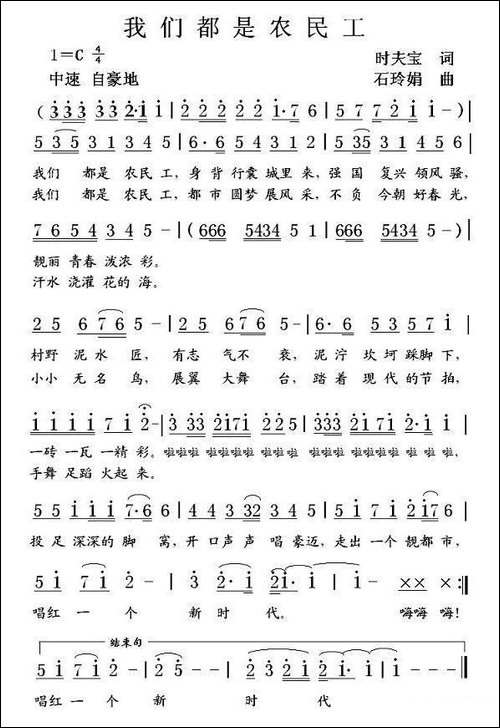 我们都是农民工
1=C 4/4 时夫宝 词
中速 自豪地 石玲娟 曲
( 3 333 333 2·i i | 2 2 2 2 2 i·7 6 | 5 7 7 2 i i - ) |
5 35 3 1 3 4 5 | 6·6 5 4 3 2 | 5 35 3 1 3 4 5 6 |
我们 都是 农民 工，身 背 行囊 城里 来，强 国 复兴 领风 骚，
我们 都是 农民 工，都 市 圆梦 展风 采，不 负 今朝 好春 光，
7 6 5 4 3 4 5 - | ( 666 5434 5 1 | 666 5434 5 - ) |
靓丽 青春 泼浓 彩。
汗水 浇灌 花的 海。
2 5 6 7 6 5 - | 2 5 6 7 6 2 - | 6· 6 5 3 2 5 7 i |
村野 泥水 匠， 有志 气不 衰，泥泞 坎坷 踩脚 下，
小小 无名 鸟，展翼 大舞 台，踏着 现代 的节 拍，
i i i i i 7 2 - | 3 33 2i7i 2 2 5 | 3 33 2i7i 2 2 i |
一砖 一瓦 一精 彩。啦 啦啦 啦啦啦啦 啦 啦 啦 啦 啦啦 啦啦啦啦 啦 啦 啦，
手舞 足蹈 火起 来。
5 5 i i i i 7·6 6 | 4 4 3 32 3 4 5 | 5 5 i i 7 2 i7 6 |
投足 深深的 脚 窝，开口 声声 唱 豪迈，走出 一个 靓都 市，
5 i 7 i 2 - | 3 2· i 2i· i | i - ×× × :||
唱红 一 个 新 时 代。 嗨嗨 嗨！
结束句
5 i 7 i 2 - | 2 - - - | 2 3 2 i 2 i· i | i - - - ||
唱红 一 个 新 时 代